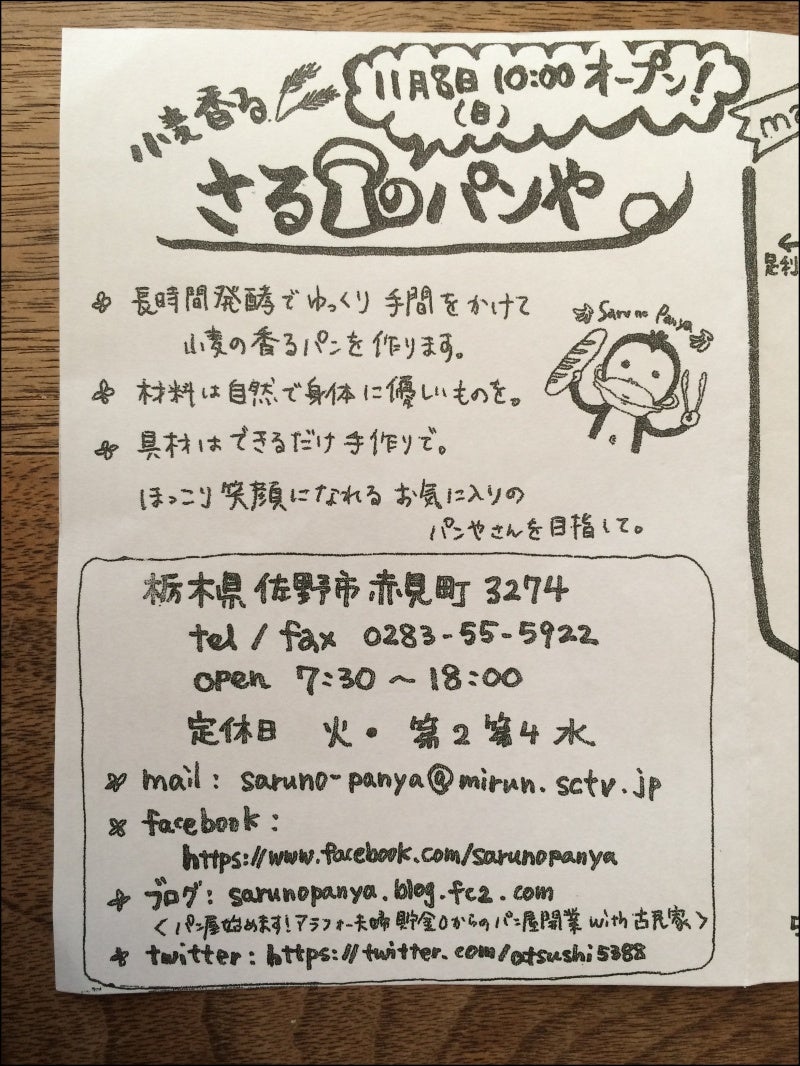 11月8日 10:00 オープン!
(日)
小麦香る
さるのパンや
ma
足利
❀ 長時間発酵でゆっくり 手間をかけて
小麦の香るパンを作ります。
❀ 材料は自然で身体に優しいものを。
❀ 具材はできるだけ手作りで。
ほっこり笑顔になれる お気に入りの
パンやさんを目指して。
Saru no Panya
栃木県 佐野市 赤見町 3274
tel / fax 0283-55-5922
open 7:30 〜 18:00
定休日 火・第2第4水
❀ mail : saruno-panya@mirun.sctv.jp
❀ facebook :
https://www.facebook.com/sarunopanya
❀ ブログ : sarunopanya.blog.fc2.com
<パン屋始めます!アラフォー夫婦 貯金0からのパン屋開業 with 古民家>
❀ twitter : https://twitter.com/otsushi5388